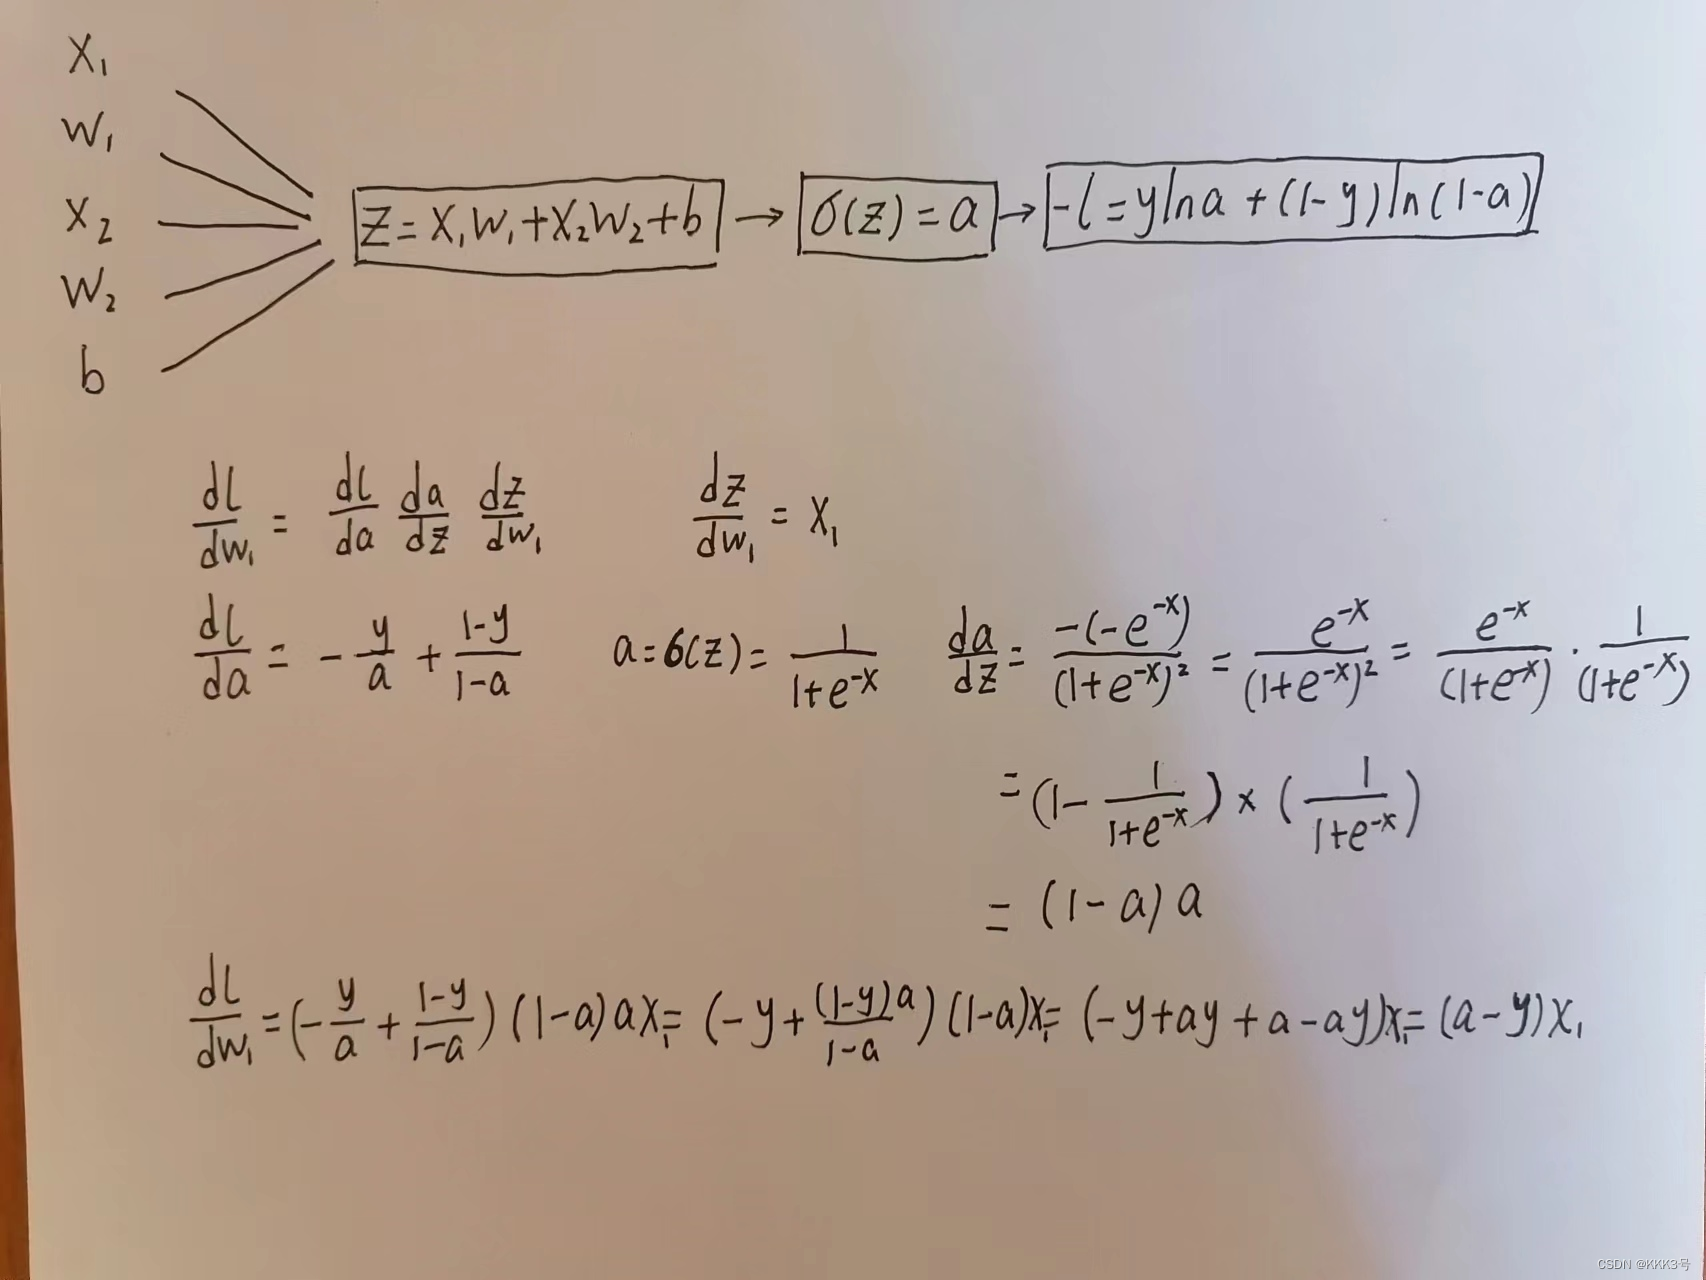 x₁
w₁
x₂
w₂
b
z = x₁w₁+x₂w₂+b → σ(z) = a → -l = y ln a + (1-y) ln (1-a)
dl/dw₁ = dl/da da/dz dz/dw₁ dz/dw₁ = x₁
dl/da = - y/a + (1-y)/(1-a) a = σ(z) = 1/(1+e^-x) da/dz = -(-e^-x)/(1+e^-x)² = e^-x/(1+e^-x)² = e^-x/(1+e^-x) · 1/(1+e^-x)
= (1 - 1/(1+e^-x)) × (1/(1+e^-x))
= (1-a) a
dl/dw₁ = (- y/a + (1-y)/(1-a)) (1-a) a x₁ = (-y + (1-y)a/(1-a)) (1-a) x₁ = (-y+ay+a-ay) x₁ = (a-y) x₁
CSDN @KKK3号